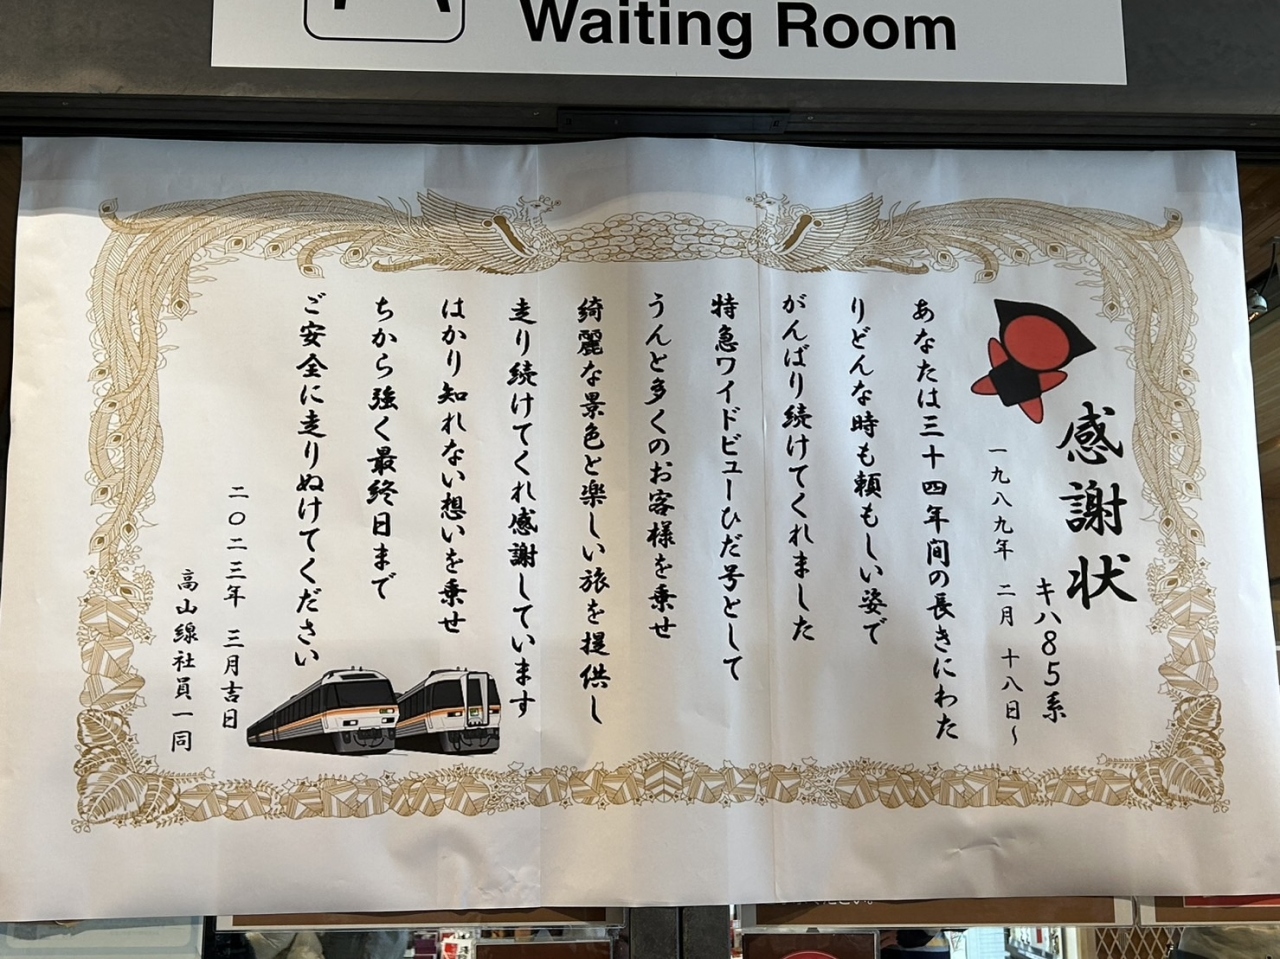 Waiting Room
感謝状
キハ85系
一九八九年 二月 十八日〜
あなたは三十四年間の長きにわた
りどんな時も頼もしい姿で
がんばり続けてくれました
特急ワイドビューひだ号として
うんと多くのお客様を乗せ
綺麗な景色と楽しい旅を提供し
走り続けてくれ感謝しています
はかり知れない想いを乗せ
ちから強く最終日まで
ご安全に走りぬけてください
二〇二三年 三月吉日
高山線社員一同